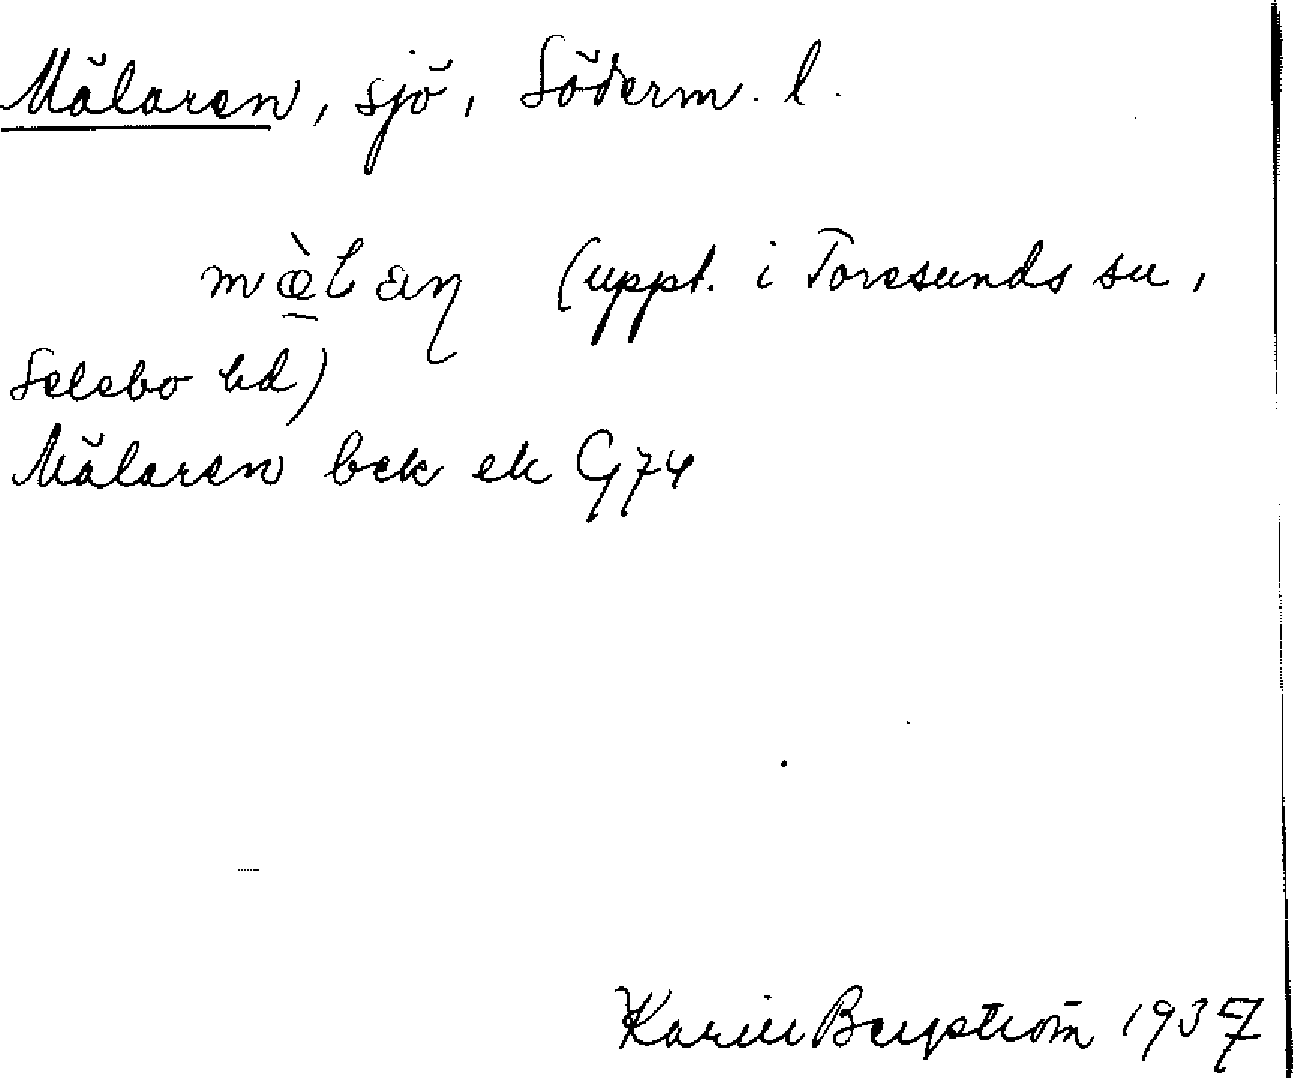 Mälaren, sjö, Söderm. l.
(uppt. i Toresunds sn,
Selebo hd)
Mälaren bek ek G74
Karin Bergström 1937